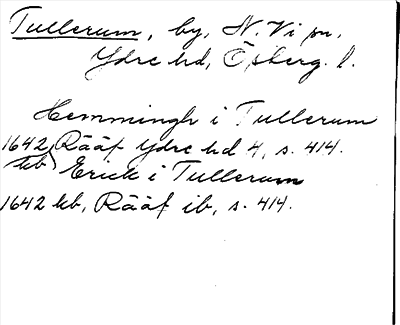 Tullerum, by, N. Vi sn,
Ydre hd, Östberg. l.
Hemmingh i Tullerum
1642 kb, Rääf Ydre hd 4, s. 414.
Erick i Tullerum
1642 kb, Rääf ib, s. 414.